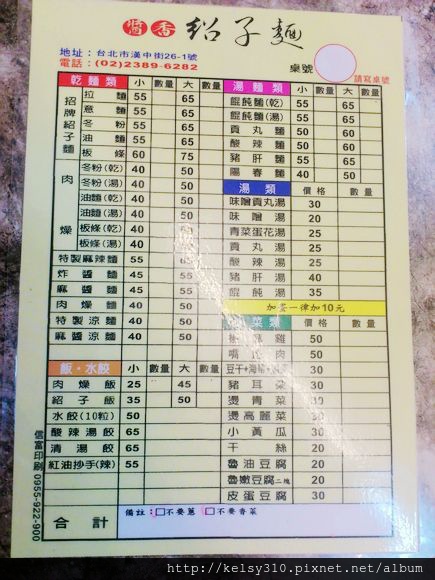 醬香 紹子麵
地址：台北市漢中街26-1號
電話：(02)2389-6282
桌號
請寫桌號
乾麵類 小 數量 大 數量
招牌紹子麵
拉麵 55 65
意麵 55 65
冬粉 55 65
油麵 55 65
板條 60 75
肉燥
冬粉(乾) 40 50
冬粉(湯) 40 50
油麵(乾) 40 50
油麵(湯) 40 50
板條(乾) 40 50
板條(湯) 40 50
特製麻辣麵 55 65
炸醬麵 45 55
麻醬麵 45 55
肉燥麵 40 50
特製涼麵 40 50
麻醬涼麵 40 50
飯‧水餃 小 數量 大 數量
肉燥飯 25 45
紹子飯 35 50
水餃(10粒) 50
酸辣湯餃 65
清湯餃 65
紅油抄手(辣) 55
湯麵類 小 數量 大 數量
餛飩麵(乾) 55 65
餛飩麵(湯) 55 65
貢丸麵 50 60
酸辣麵 50 60
豬肝麵 55 65
陽春麵 40 50
湯類 價格 數量
味噌貢丸湯 30
味噌湯 20
青菜蛋花湯 25
貢丸湯 25
酸辣湯 25
豬肝湯 40
餛飩湯 35
加蛋一律加10元
菜類 價格 數量
椒麻雞 50
嘴肉 50
豆干+海帶 30
豬耳朵 30
燙青菜 30
燙高麗菜 30
小黃瓜 30
干絲 20
魯油豆腐 20
魯嫩豆腐二塊 20
皮蛋豆腐 30
合計
備註：□不要蔥 □不要香菜
信富印刷 0955-922-900
http://kelsy310.pixnet.net/album